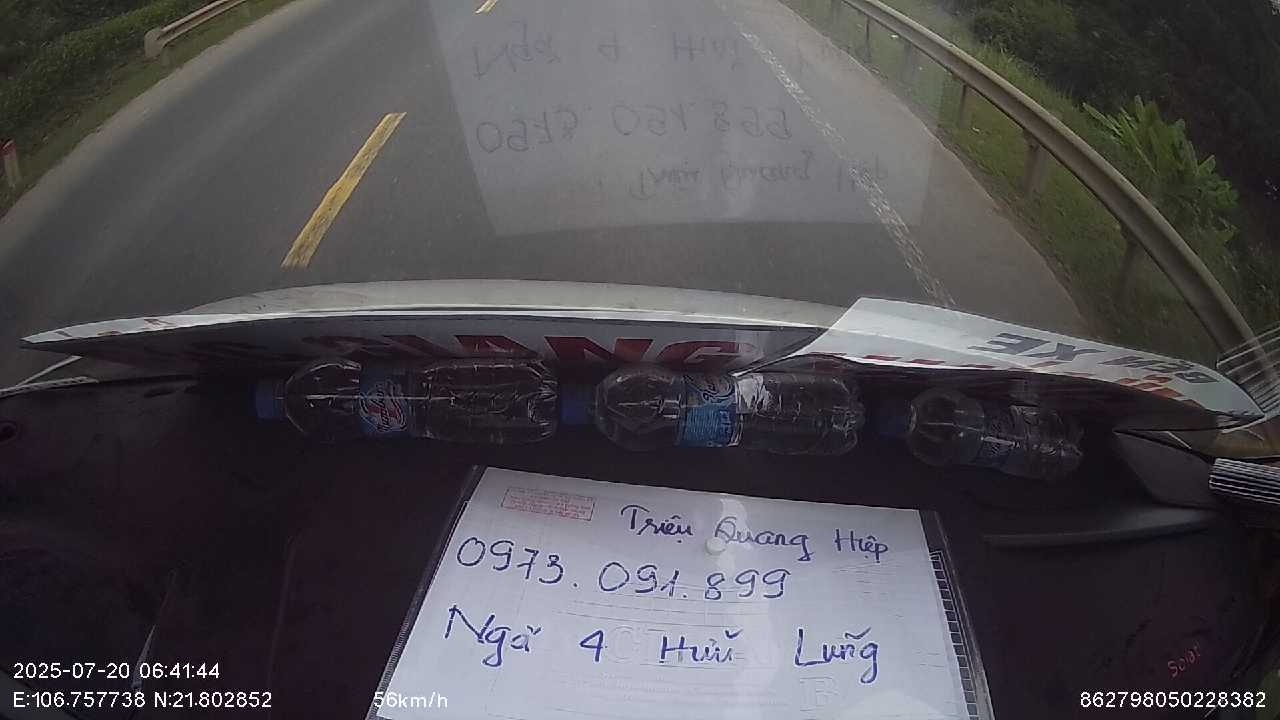 GIANG
BẾN XE
Triệu Quang Hiệp
0973.091.899
Ngã 4 Hữu Lũng
2025-07-20 06:41:44
E:106.757738 N:21.802852
56km/h
862798050228382